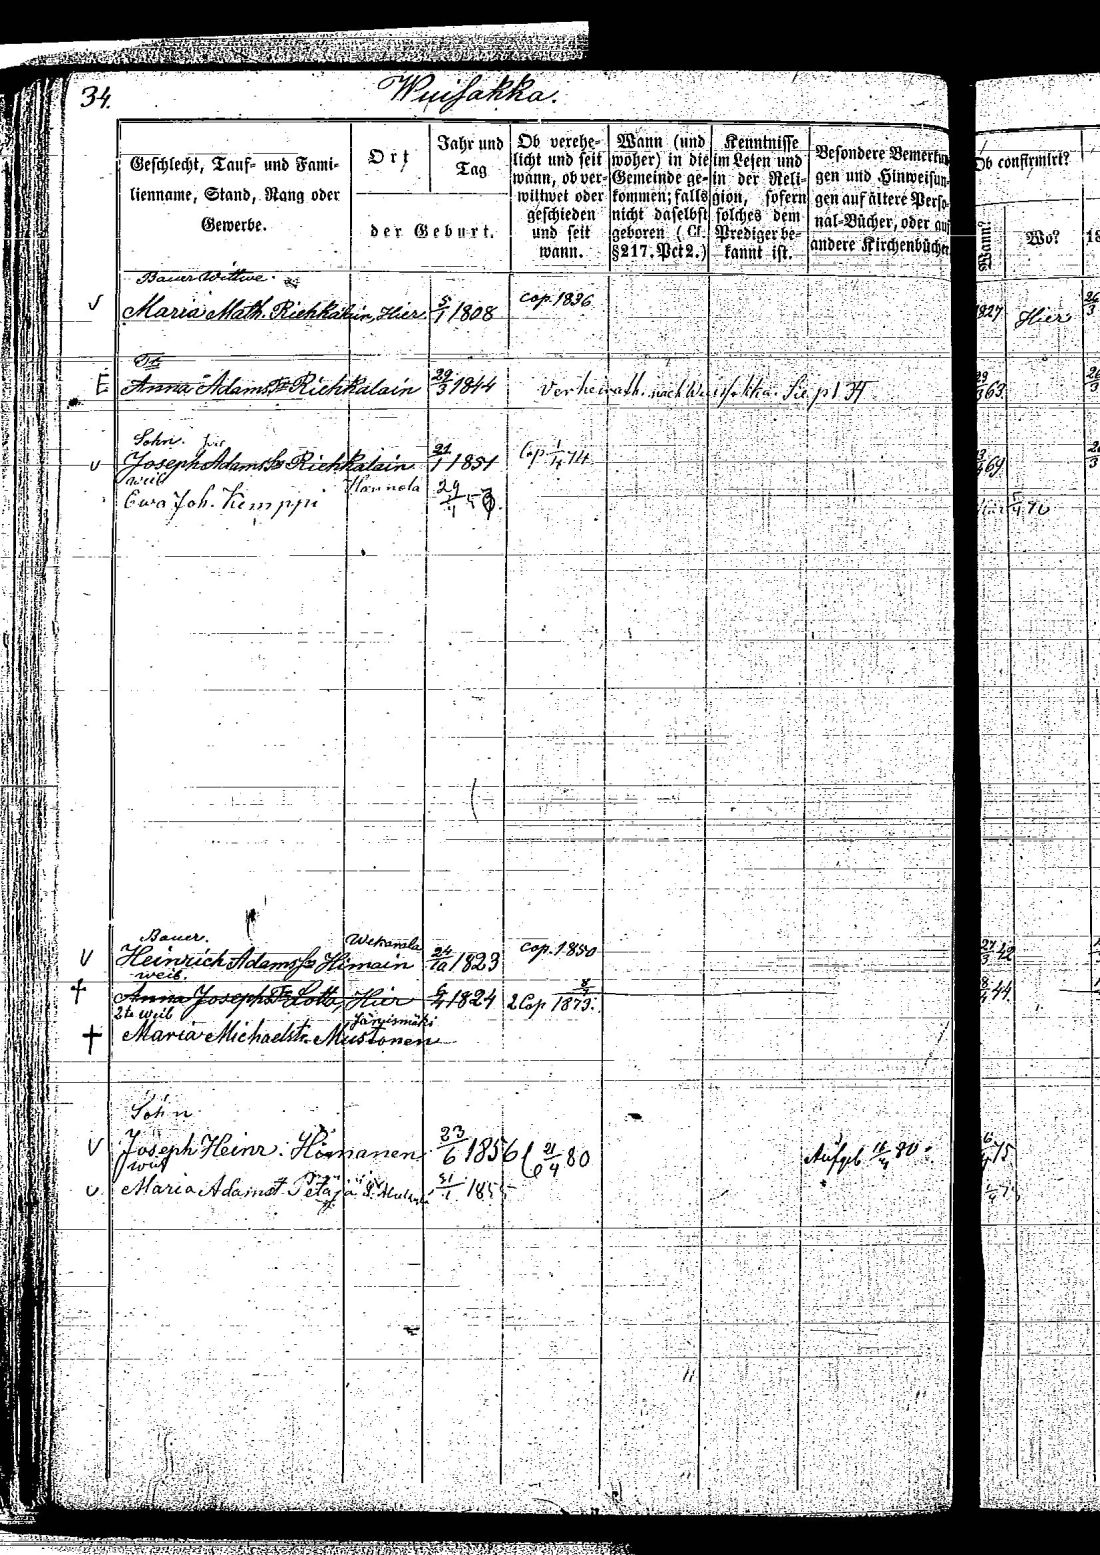 34.
Wuisakka.
Geschlecht, Tauf- und Fami-
lienname, Stand, Rang oder
Gewerbe.
Ort
Jahr und
Tag
der Geburt.
Ob verehe-
licht und seit
wann, ob ver-
wittwet oder
geschieden
und seit
wann.
Wann (und
woher) in die
Gemeinde ge-
kommen; falls
nicht daselbst
geboren (Cf:
§217. Pct 2.)
Kenntnisse
im Lesen und
in der Reli-
gion, sofern
solches dem
Prediger be-
kannt ist.
Besondere Bemerkun
gen und Hinweisun-
gen auf ältere Perso-
nal-Bücher, oder auf
andere Kirchenbücher
Ob confirmirt?
Wann?
Wo?
18
Bauer Wittwe.
V Maria Math. Riehkalain, Hier 5/1 1808 cop. 1836 1827 Hier 26/3
Tr
E Anna Adams Tr Riehkalain 29/3 1844 Verheirath. nach Wuisakka. Sie. pl 34 63 26/3
Sohn. Hier
v Joseph Adams So Riehkalain 21/1 1851 Cop. 1/4 74 69
weib
Ewa Joh. Kemppi 29/4 53.
Bauer. Wekansala
V Heinrich Adams So Himain 24/10 1823 cop. 1850 27/3 42
weib.
† Anna Josephs Tr Lotta, Hier 6/4 1824 2 Cop 8/4 1873. 8/4 44
2te weib Järvismäki
† Maria Michaelstr. Mustonen
Sohn
V Joseph Heinr. Himanen 23/6 1856 21/4 80 Aufgeb. 80 75
weib
v. Maria Adamst. Petäjä 31/1 1855